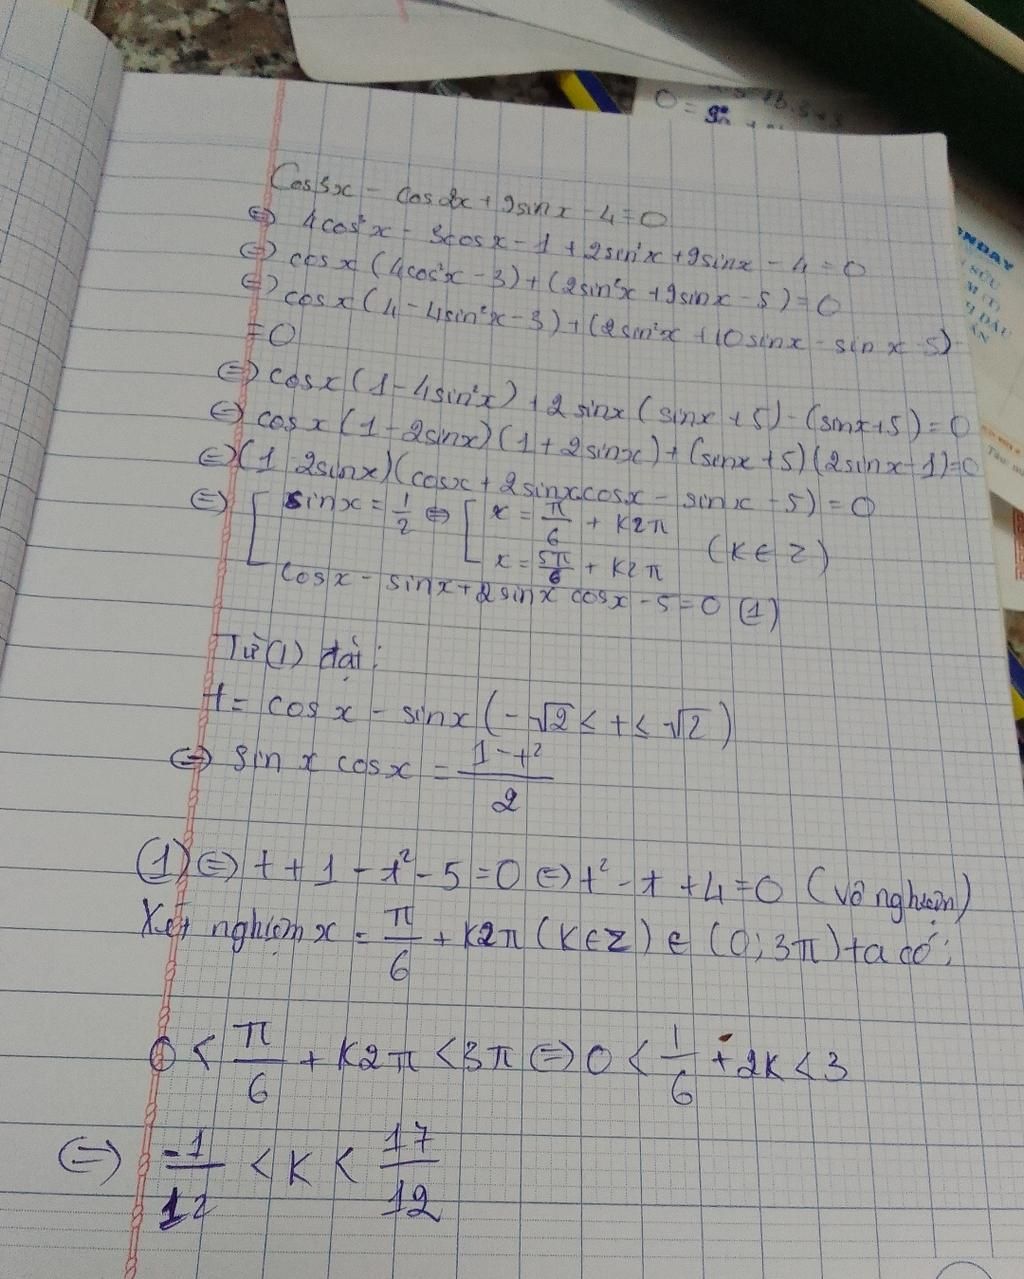 O = 9
NDAY
Cos3x - cos2x + 9sinx - 4 = 0
⇔ 4cos³x - 3cosx - 1 + 2sin²x + 9sinx - 4 = 0
⇔ cosx (4cos²x - 3) + (2sin²x + 9sinx - 5) = 0
⇔ cosx (4 - 4sin²x - 3) + (2sin²x + 10sinx - sinx - 5)
= 0
⇔ cosx (1 - 4sin²x) + 2sinx (sinx + 5) - (sinx + 5) = 0
⇔ cosx (1 - 2sinx)(1 + 2sinx) + (sinx + 5)(2sinx - 1) = 0
⇔ (1 - 2sinx)(cosx + 2sinxcosx - sinx - 5) = 0
⇔ [ sinx = 1/2 ⇔ [ x = π/6 + k2π
x = 5π/6 + k2π (k ∈ Z)
cosx - sinx + 2sinx cosx - 5 = 0 (1)
Từ (1) đặt:
t = cosx - sinx (-√2 ≤ t ≤ √2)
⇔ sinx cosx = (1 - t²)/2
(1) ⇔ t + 1 - t² - 5 = 0 ⇔ t² - t + 4 = 0 (vô nghiệm)
Xét nghiệm x = π/6 + k2π (k ∈ Z) ∈ (0; 3π) ta có:
0 < π/6 + k2π < 3π ⇔ 0 < 1/6 + 2k < 3
⇔ -1/12 < k < 17/12